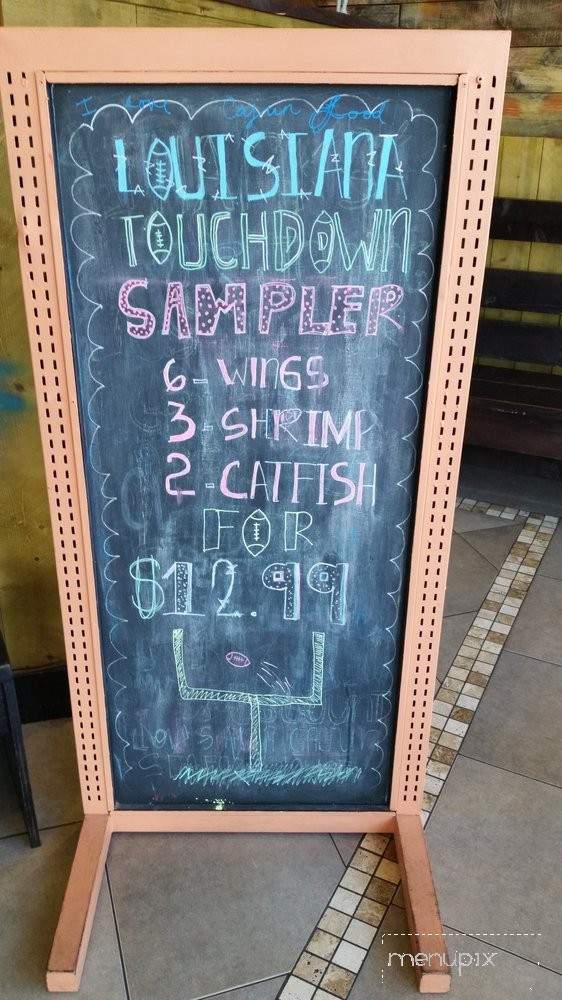 I love Cajun food
LOUISIANA
TOUCHDOWN
SAMPLER
6-WINGS
3-SHRIMP
2-CATFISH
FOR
$12.99
menupix